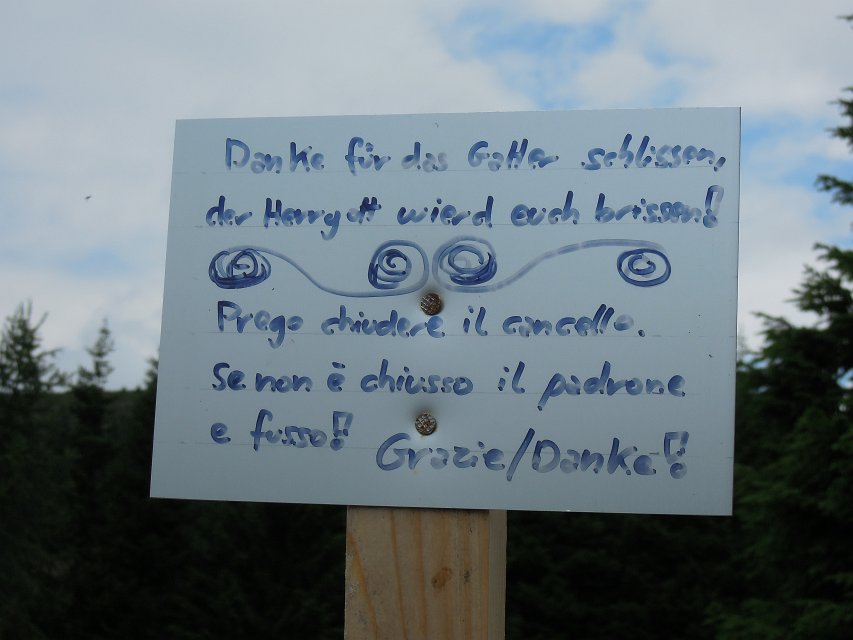 Danke für das Gatter schlissen,
der Herrgott wierd euch brissen!
Prego chiudere il cancello.
Se non è chiusso il padrone
e fusso!
Grazie/Danke!